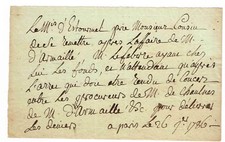 Le M.is d'Estourmel prie Monsieur Cousin
de se mettre après l'affaire de M.
d'Armaillé, M. Lefebvre ayant chez
lui les fonds, et n'attendant qu'après
l'arret qui doit être rendu
contre les procureurs de M. de Chaulnes
de M. d'Armaille &c pour délivrer
les deniers
a paris le 26 9.bre 1786